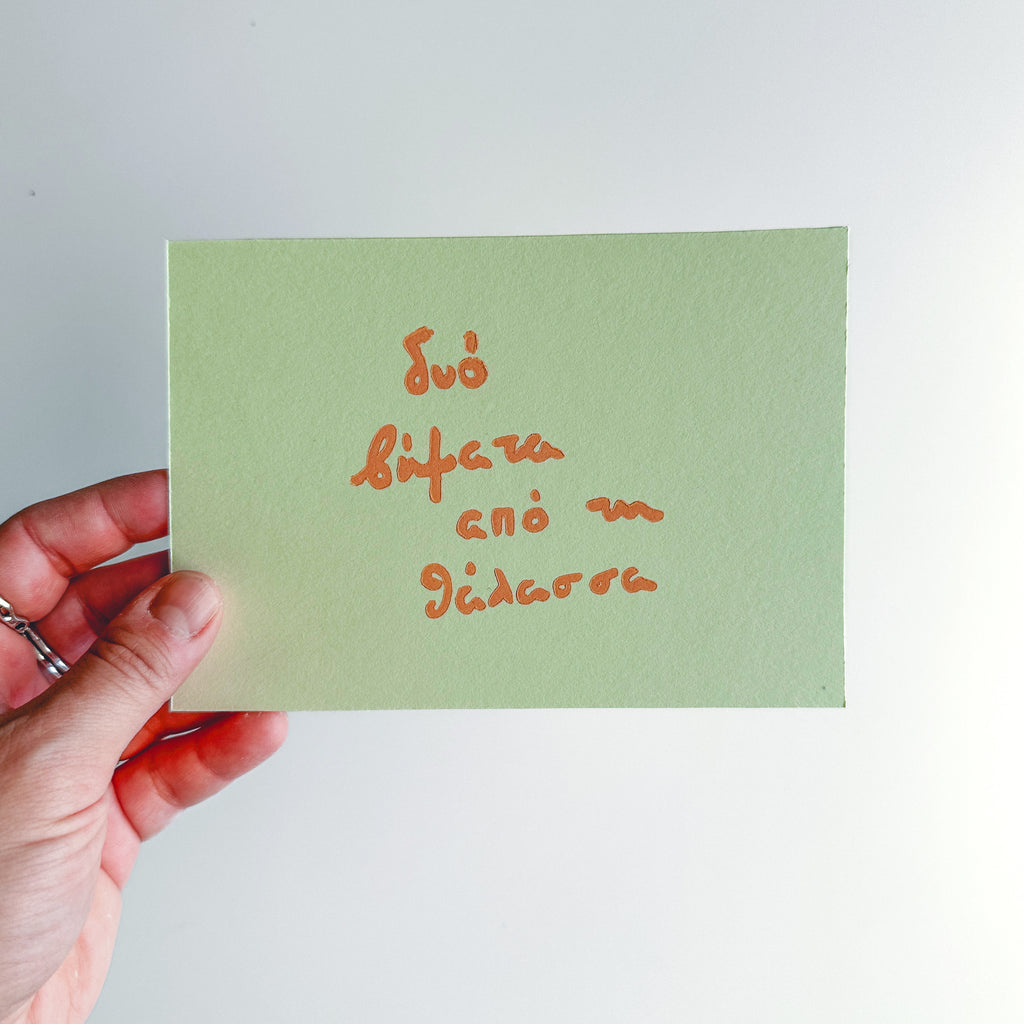 δυό
βήματα
από τη
θάλασσα